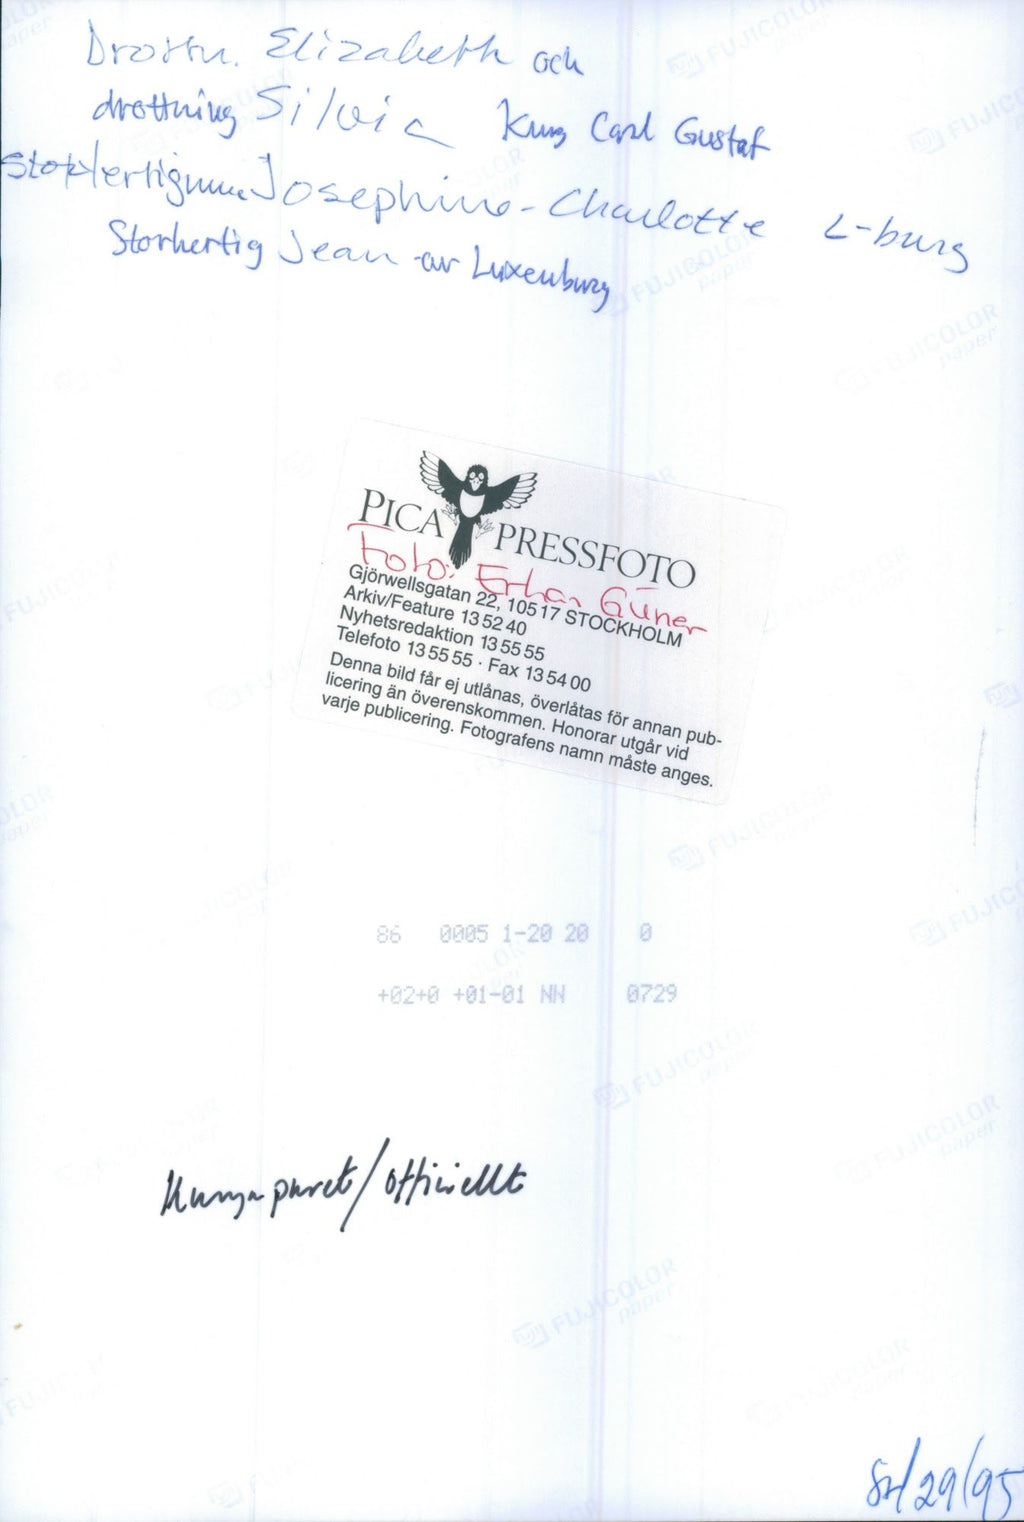 Drottn. Elizabeth och
drottning Silvia Kung Carl Gustaf
Storhertiginnan Josephine-Charlotte L-burg
Storhertig Jean av Luxenburg
PICA PRESSFOTO
Foto: Erhan Güner
Gjörwellsgatan 22, 105 17 STOCKHOLM
Arkiv/Feature 13 52 40
Nyhetsredaktion 13 55 55
Telefoto 13 55 55 · Fax 13 54 00
Denna bild får ej utlånas, överlåtas för annan pub-
licering än överenskommen. Honorar utgår vid
varje publicering. Fotografens namn måste anges.
86 0005 1-20 20 0
+02+0 +01-01 NN 0729
Kungaparet/officiellt
/29/95
FUJICOLOR
paper